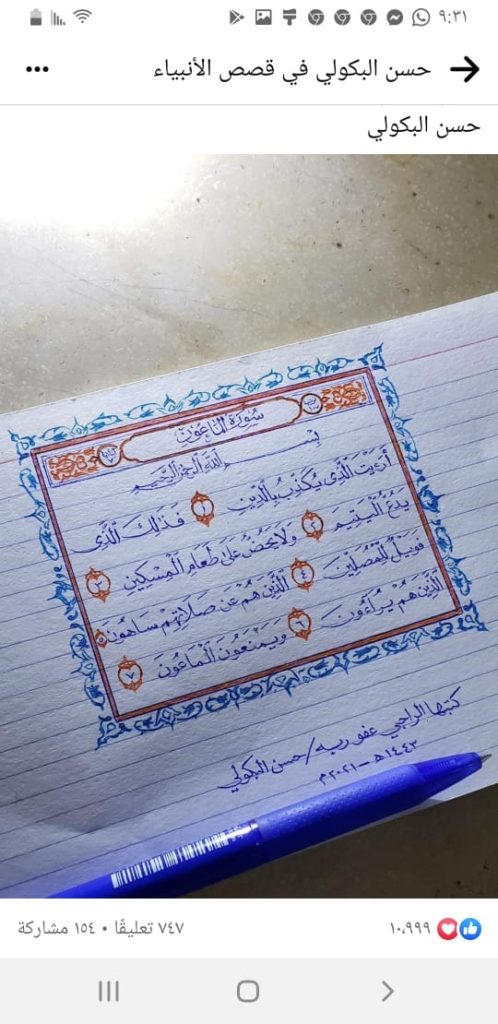 ٩:٣١
حسن البكولي في قصص الأنبياء
حسن البكولي
سورة الماعون
بسم الله الرحمن الرحيم
أرءيت الذي يكذب بالدين ١ فذلك الذي
يدع اليتيم ٢ ولا يحض على طعام المسكين ٣
فويل للمصلين ٤ الذين هم عن صلاتهم ساهون ٥
الذين هم يراءون ٦ ويمنعون الماعون ٧
كتبها الراجي عفو ربه / حسن البكولي
١٤٤٣ هـ - ٢٠٢١ م
١٠،٩٩٩
٧٤٧ تعليقًا • ١٥٤ مشاركة